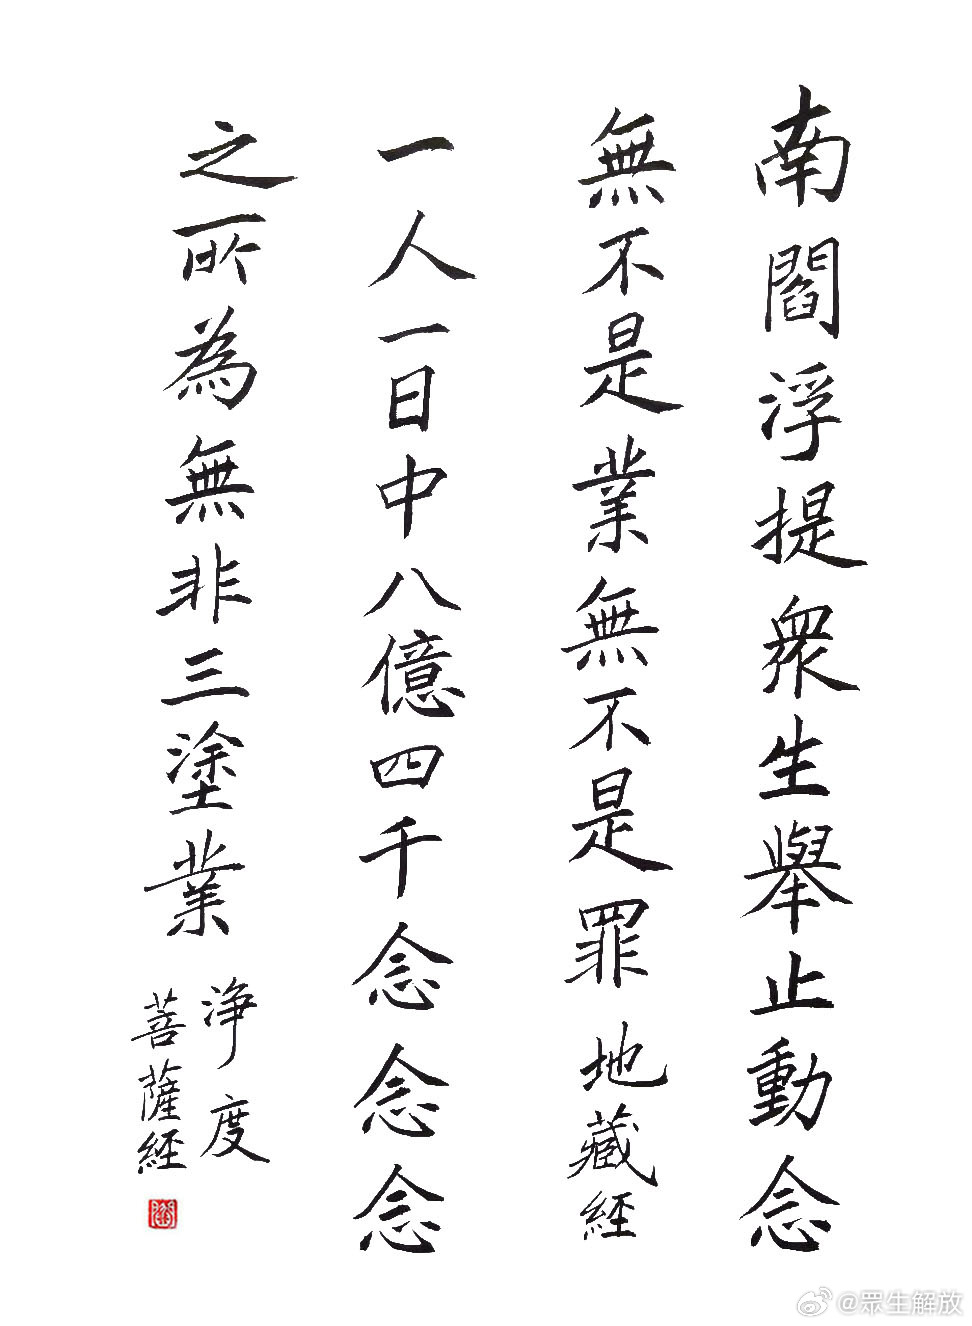 南閻浮提衆生舉止動念
無不是業無不是罪 地藏經
一人一日中八億四千念念念
之所為無非三塗業 浄度
菩薩經
@眾生解放